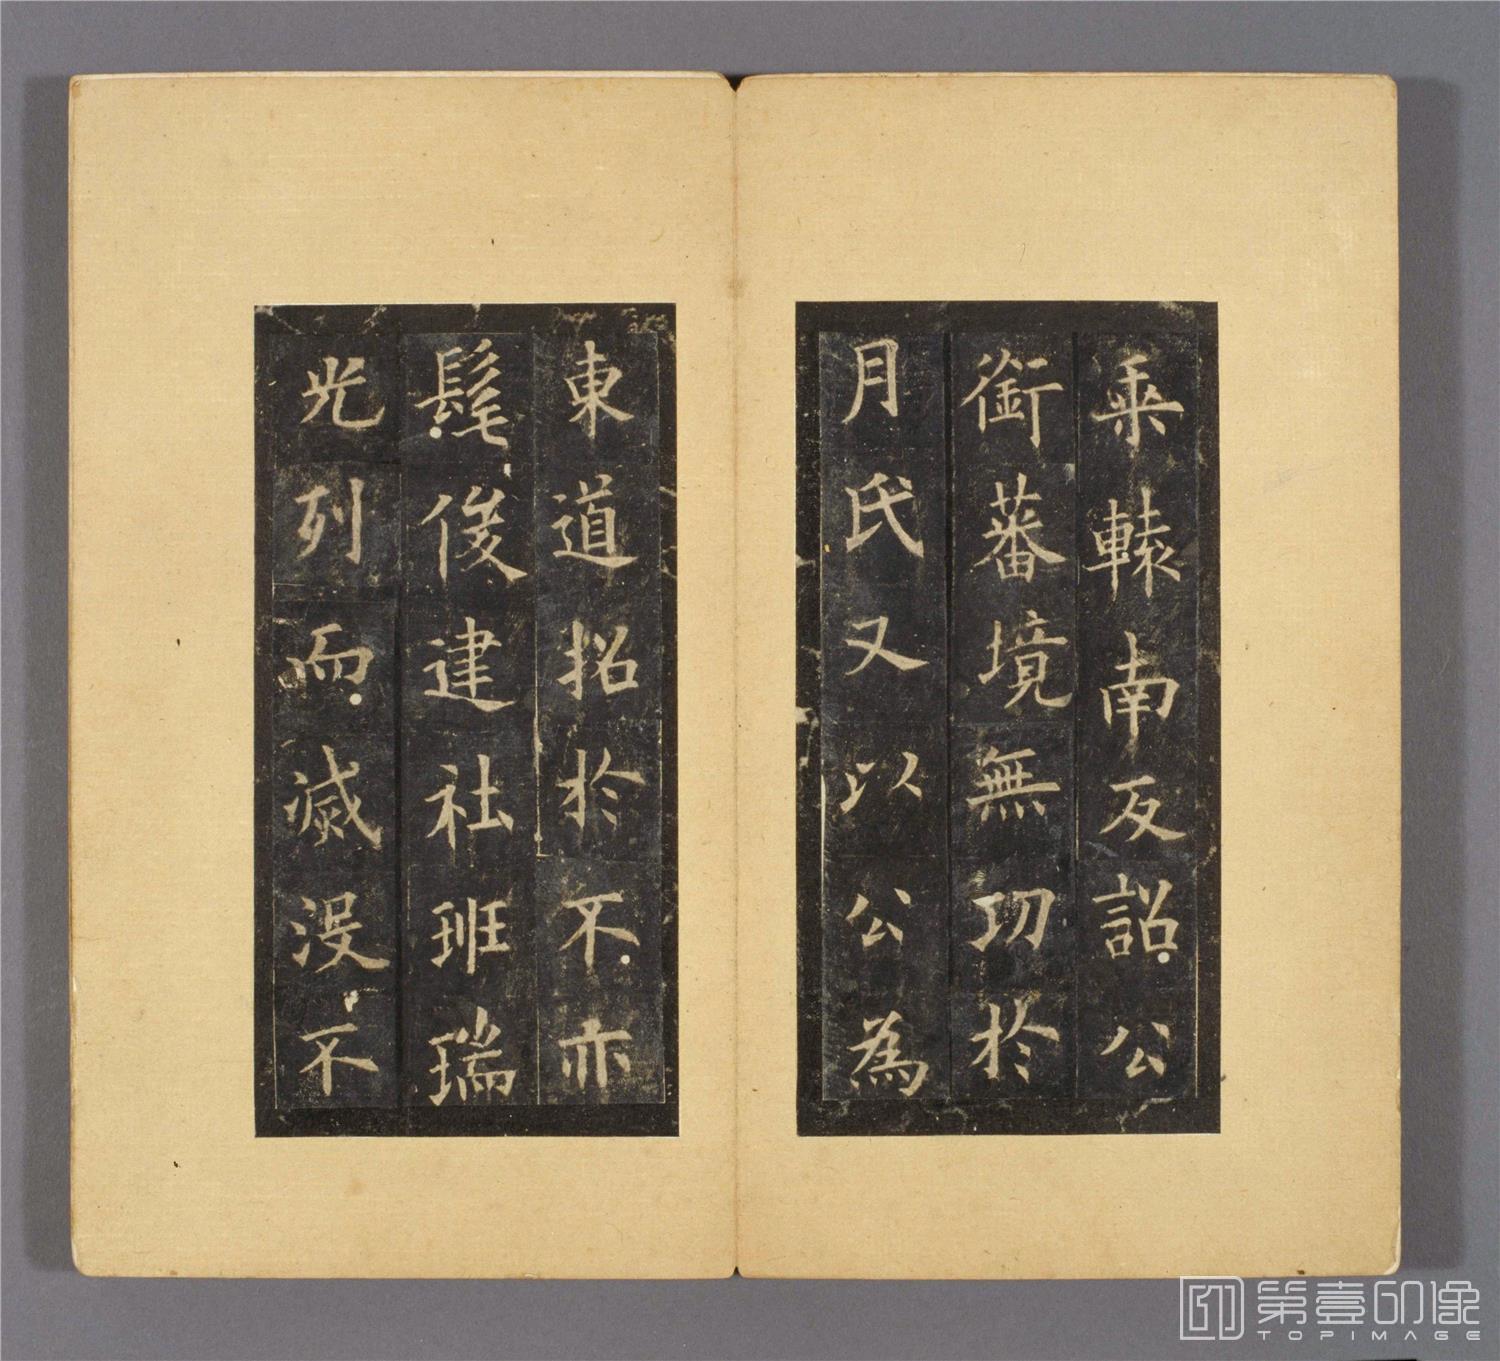 乘轅南反詔公
銜蕃境無功於
月氏又以公為
東道招於不亦
髦俊建社班瑞
光列而滅沒不
第壹印像
TOPIMAGE